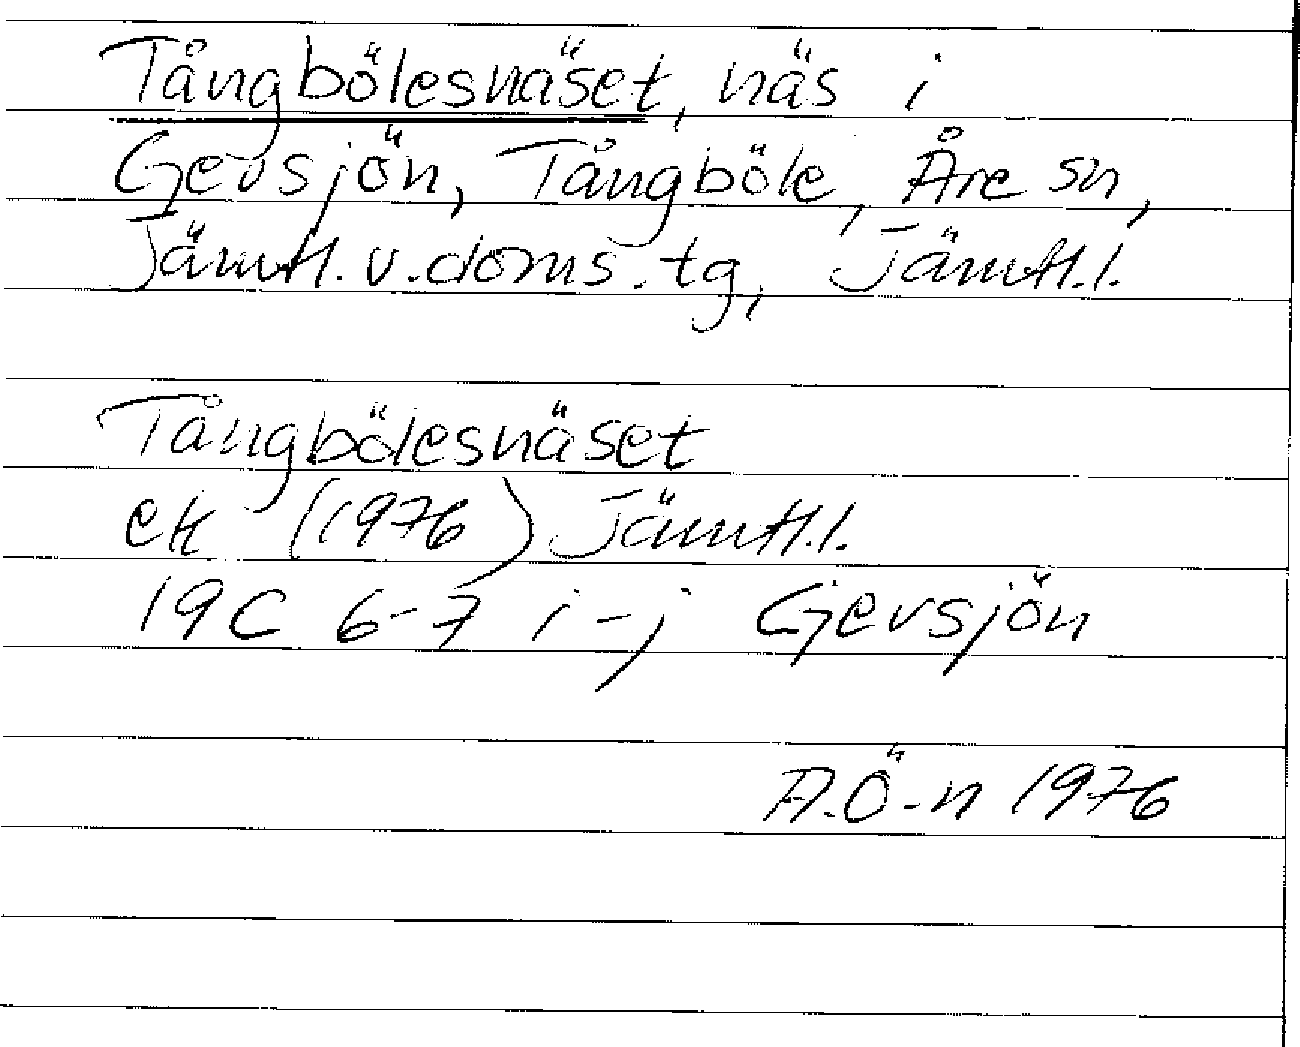 Tångbölesnäset, näs i
Gevsjön, Tångböle, Åre sn,
Jämtl. v. doms. tg, Jämtl. l.
Tångbölesnäset
ek (1976) Jämtl. l.
19C 6-7 i-j Gevsjön
A.Ö-n 1976